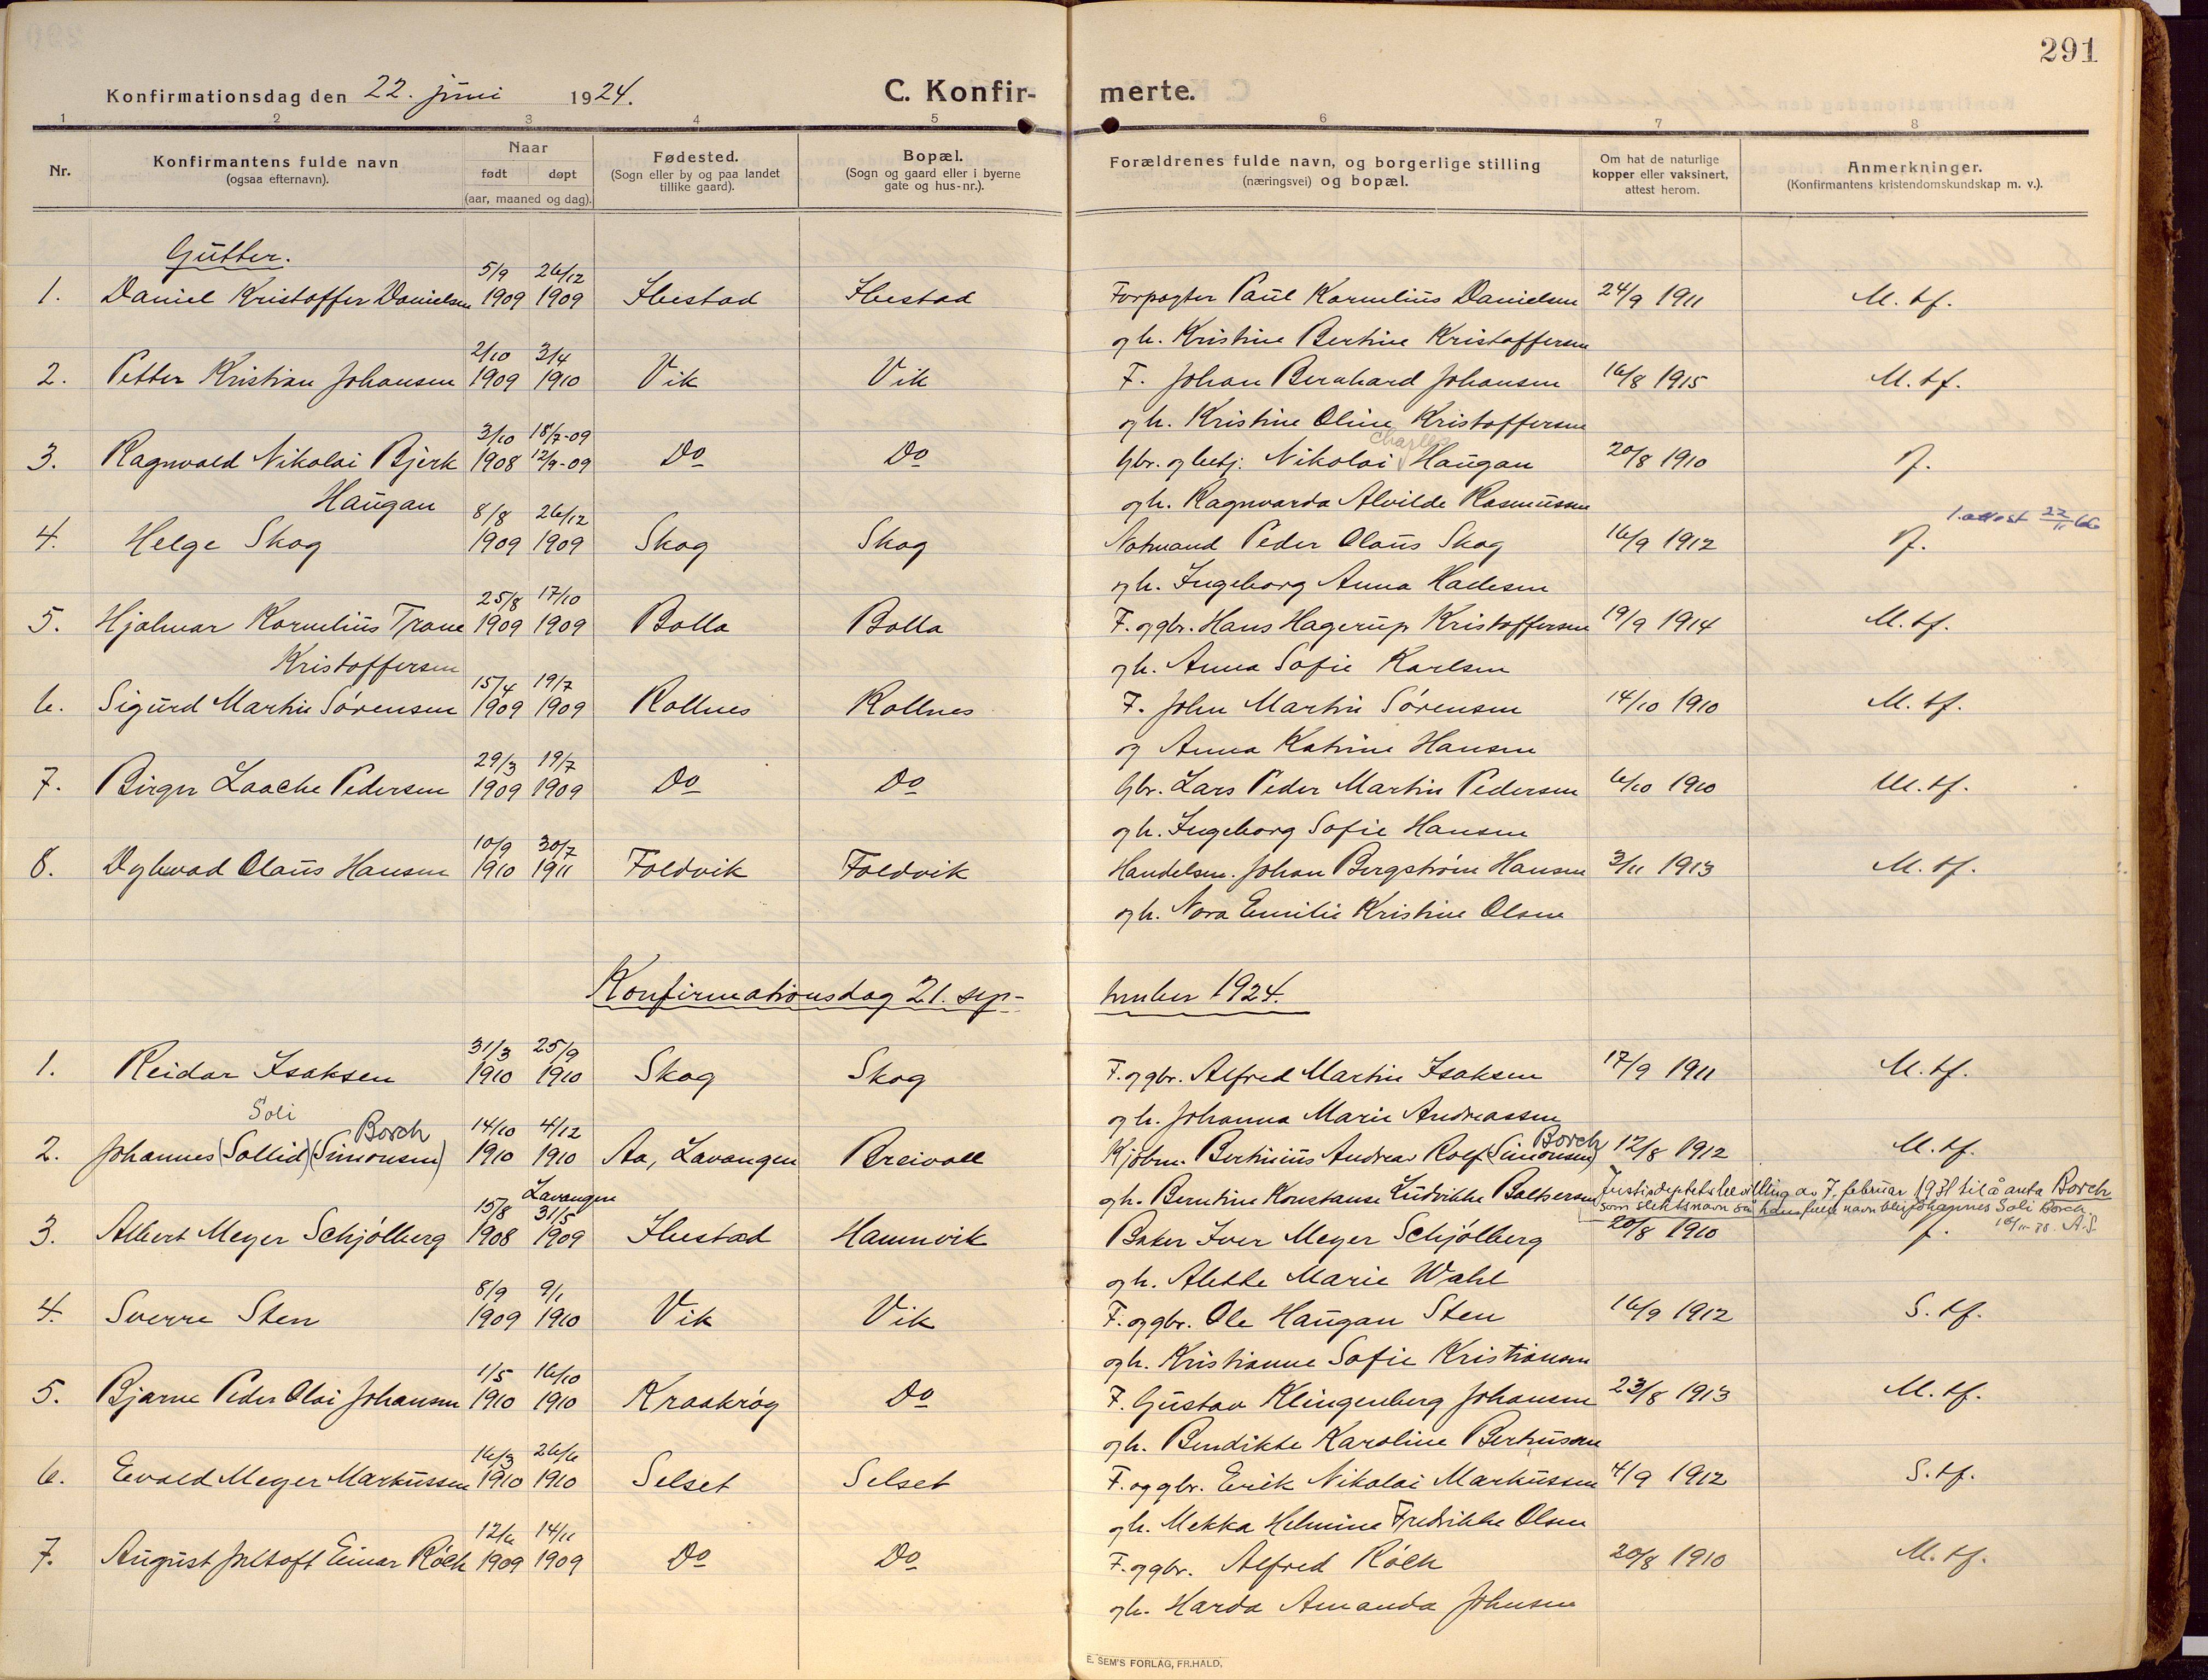 291
Konfirmationsdag den 22. juni 1924. C. Konfir- merte.
1 2 3 4 5 6 7 8
Nr. Konfirmantens fulde navn (ogsaa efternavn). Naar født døpt (aar, maaned og dag). Fødested. (Sogn eller by og paa landet tillike gaard). Bopæl. (Sogn og gaard eller i byerne gate og hus-nr.). Forældrenes fulde navn, og borgerlige stilling (næringsvei) og bopæl. Om hat de naturlige kopper eller vaksinert, attest herom. Anmerkninger. (Konfirmantens kristendomskundskap m. v.).
Gutter.
5/9 26/12
1. Daniel Kristoffer Danielsen 1909 1909 Ibestad Ibestad Forpagter Paul Kornelius Danielsen 24/9 1911 M. tf.
og h. Kristine Bertine Kristoffersen
2/10 3/4
2. Petter Kristian Johansen 1909 1910 Vik Vik F. Johan Bernhard Johansen 16/8 1915 M. tf.
og h. Kristine Oline Kristoffersen
3/10 18/7-09 Charles
3. Ragnvald Nikolai Bjerk 1908 12/9-09 Do Do Gbr. og betj. Nikolai Haugan 20/8 1910
Haugan og h. Ragnvarda Alvilde Rasmussen
8/8 26/12 1. attest 22/11 66
4. Helge Skog 1909 1909 Skog Skog Notmand Peder Olaus Skog 16/9 1912
og h. Ingeborg Anna
25/8 17/10
5. Hjalmar Kornelius Trane 1909 1909 Bolla Bolla F. og gbr. Hans Hagerup Kristoffersen 19/9 1914 M. tf.
Kristoffersen og h. Anna Sofie Karlsen
15/4 19/7
6. Sigurd Martin Sørensen 1909 1909 Rollnes Rollnes F. John Martin Sørensen 14/10 1910 M. tf.
og Anna Katrine Hansen
29/3 19/7
7. Birger Laache Pedersen 1909 1909 Do Do Gbr. Lars Peder Martin Pedersen 6/10 1910 M. tf.
og h. Ingeborg Sofie Hansen
10/9 30/7
8. Dybvad Olaus Hansen 1910 1911 Foldvik Foldvik Handelsm. Johan Bergstrøm Hansen 3/11 1913 M. tf.
og h. Nora Emilie Kristine Olsen
Konfirmationsdag 21. sep- tember 1924.
31/3 25/9
1. Reidar Isaksen 1910 1910 Skog Skog F. og gbr. Alfred Martin Isaksen 17/9 1911 M. tf.
og h. Johanna Marie Andreassen
Soli Borch 14/10 4/12 Borch
2. Johannes (Sollid) (Simonsen) 1910 1910 Aa, Lavangen Breivoll Kjøbm. Bertinius Andreas Rolf (Simonsen) 12/8 1912 M. tf.
og h. Berntine Konstanse Ludvikke Baltsersen Justisdeptets bevilling av 7. februar 1931 til å anta Borch
som slektsnavn så hans fulle navn blir Johannes Soli Borch.
Lavangen
15/8 31/5
3. Albert Meyer Schjølberg 1908 1909 Ibestad Hamnvik Baker Iver Meyer Schjølberg 20/8 1910 A.S.
og h. Alette Marie Wahl
8/9 9/1
4. Sverre Sten 1909 1910 Vik Vik F. og gbr. Ole Haugan Sten 16/9 1912 S. tf.
og h. Kristianne Sofie Kristiansen
1/5 16/10
5. Bjarne Peder Olai Johansen 1910 1910 Kraakrøg Do F. Gustav Klingenberg Johansen 23/8 1913 M. tf.
og h. Bendikte Karoline Bertheusen
16/3 26/6
6. Evald Meyer Markussen 1910 1910 Selset Selset F. og gbr. Erik Nikolai Markussen 4/9 1912 S. tf.
og h. Mekka Helmine Fredrikke Olsen
12/6 14/11
7. August Jeltoft Einar Röck 1909 1909 Do Do F. og gbr. Alfred Röck 20/8 1910 M. tf.
og h. Harda Amanda Johnsen
E. SEM'S FORLAG, FR.HALD.